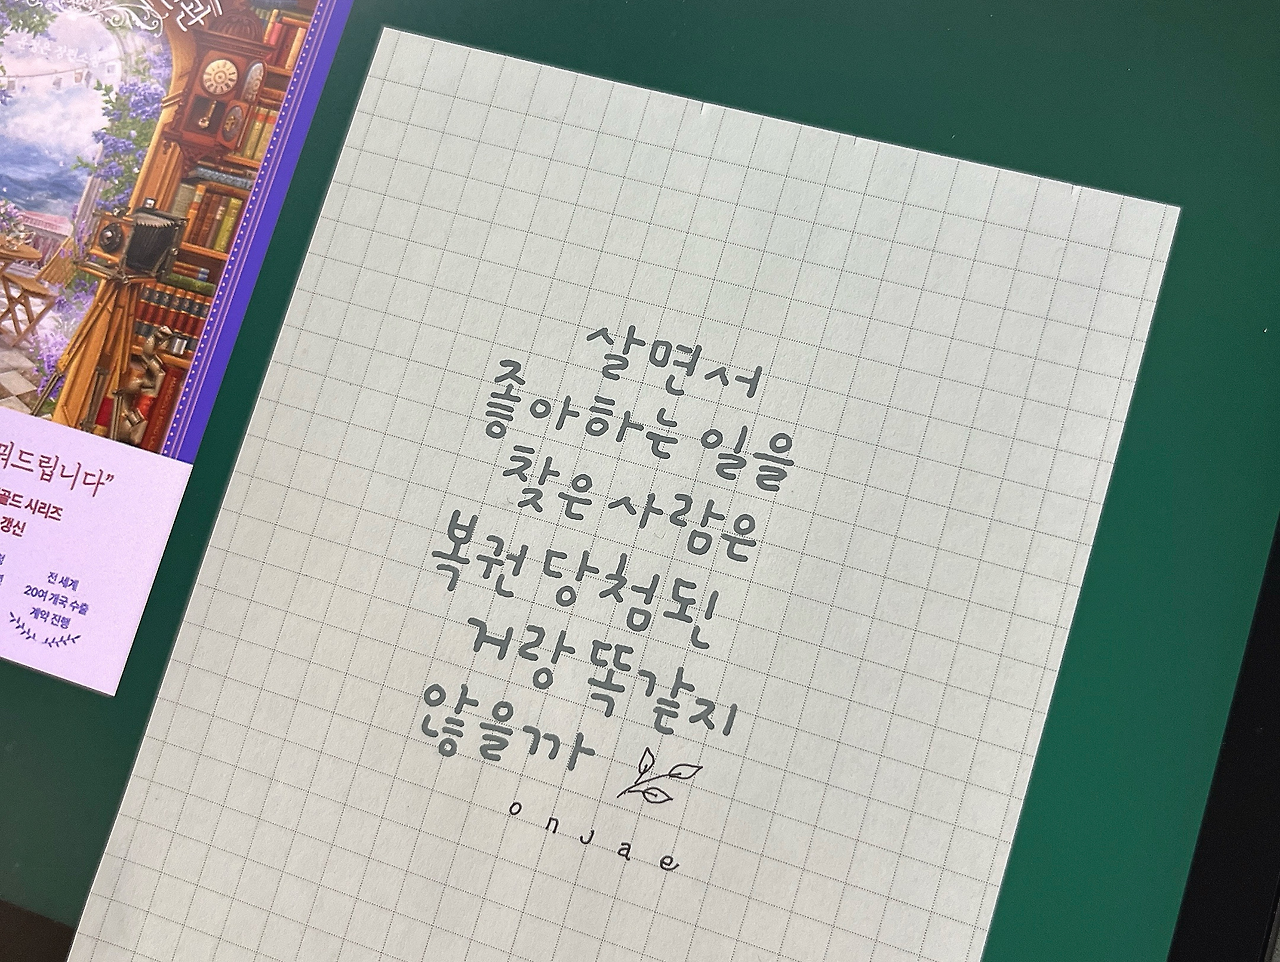 살면서
좋아하는 일을
찾은 사람은
복권 당첨된
거랑 똑같지
않을까
onjae
꿔드립니다”
골드 시리즈
갱신
전 세계
20여 개국 수출
계약 진행